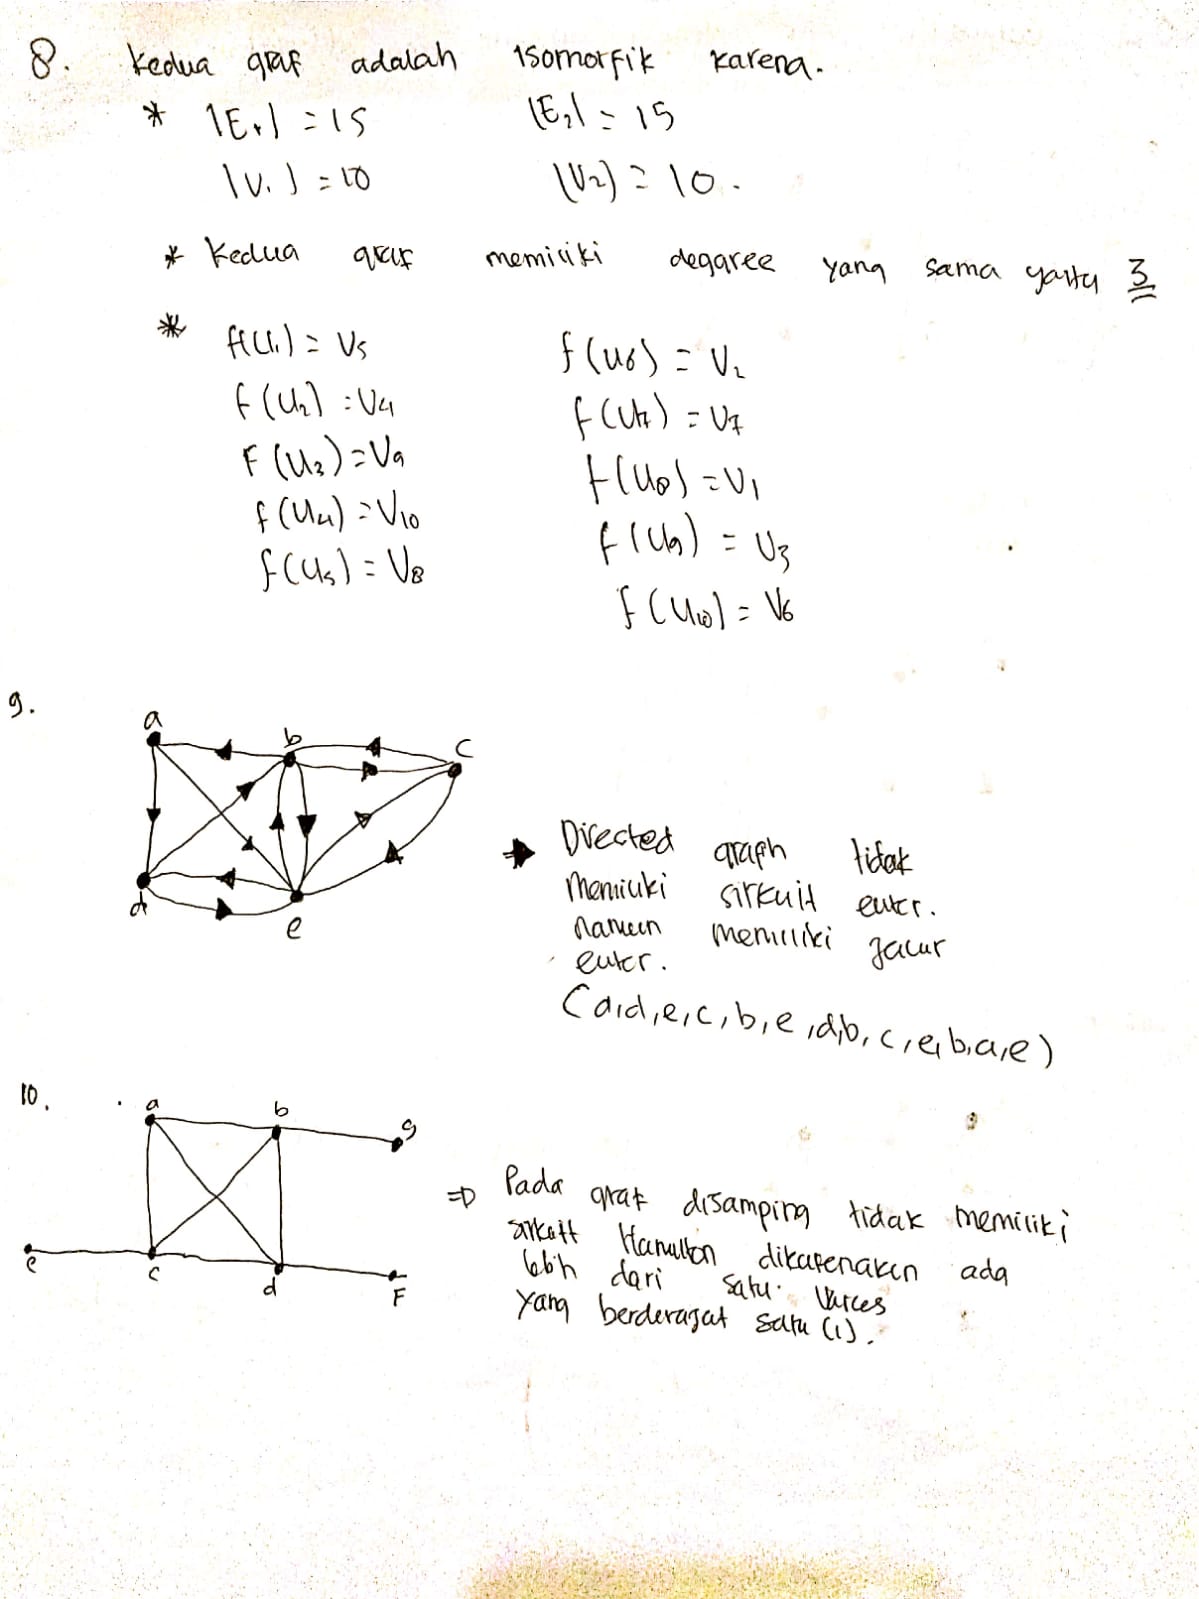 8. Kedua graf adalah isomorfik karena.
* |E₁| = 15 |E₂| = 15
|V₁| = 10 |V₂| = 10.
* Kedua graf memiliki degaree yang sama yaitu 3
* f(U₁) = V₅ f(U₆) = V₂
f(U₂) = V₄ f(U₇) = V₇
F(U₃) = V₉ f(U₈) = V₁
f(U₄) = V₁₀ f(U₉) = V₃
f(U₅) = V₈ f(U₁₀) = V₆
9.
a
b
c
d
e
→ Directed graph tidak
memiliki sirkuit euler.
namun memiliki jalur
euler.
(a,d,e,c,b,e,d,b,c,e,b,a,e)
10.
a b g
e c d F
⇒ Pada graf disamping tidak memiliki
sirkuit Hamilton dikarenakan ada
lebih dari satu
yang berderajat satu (1).